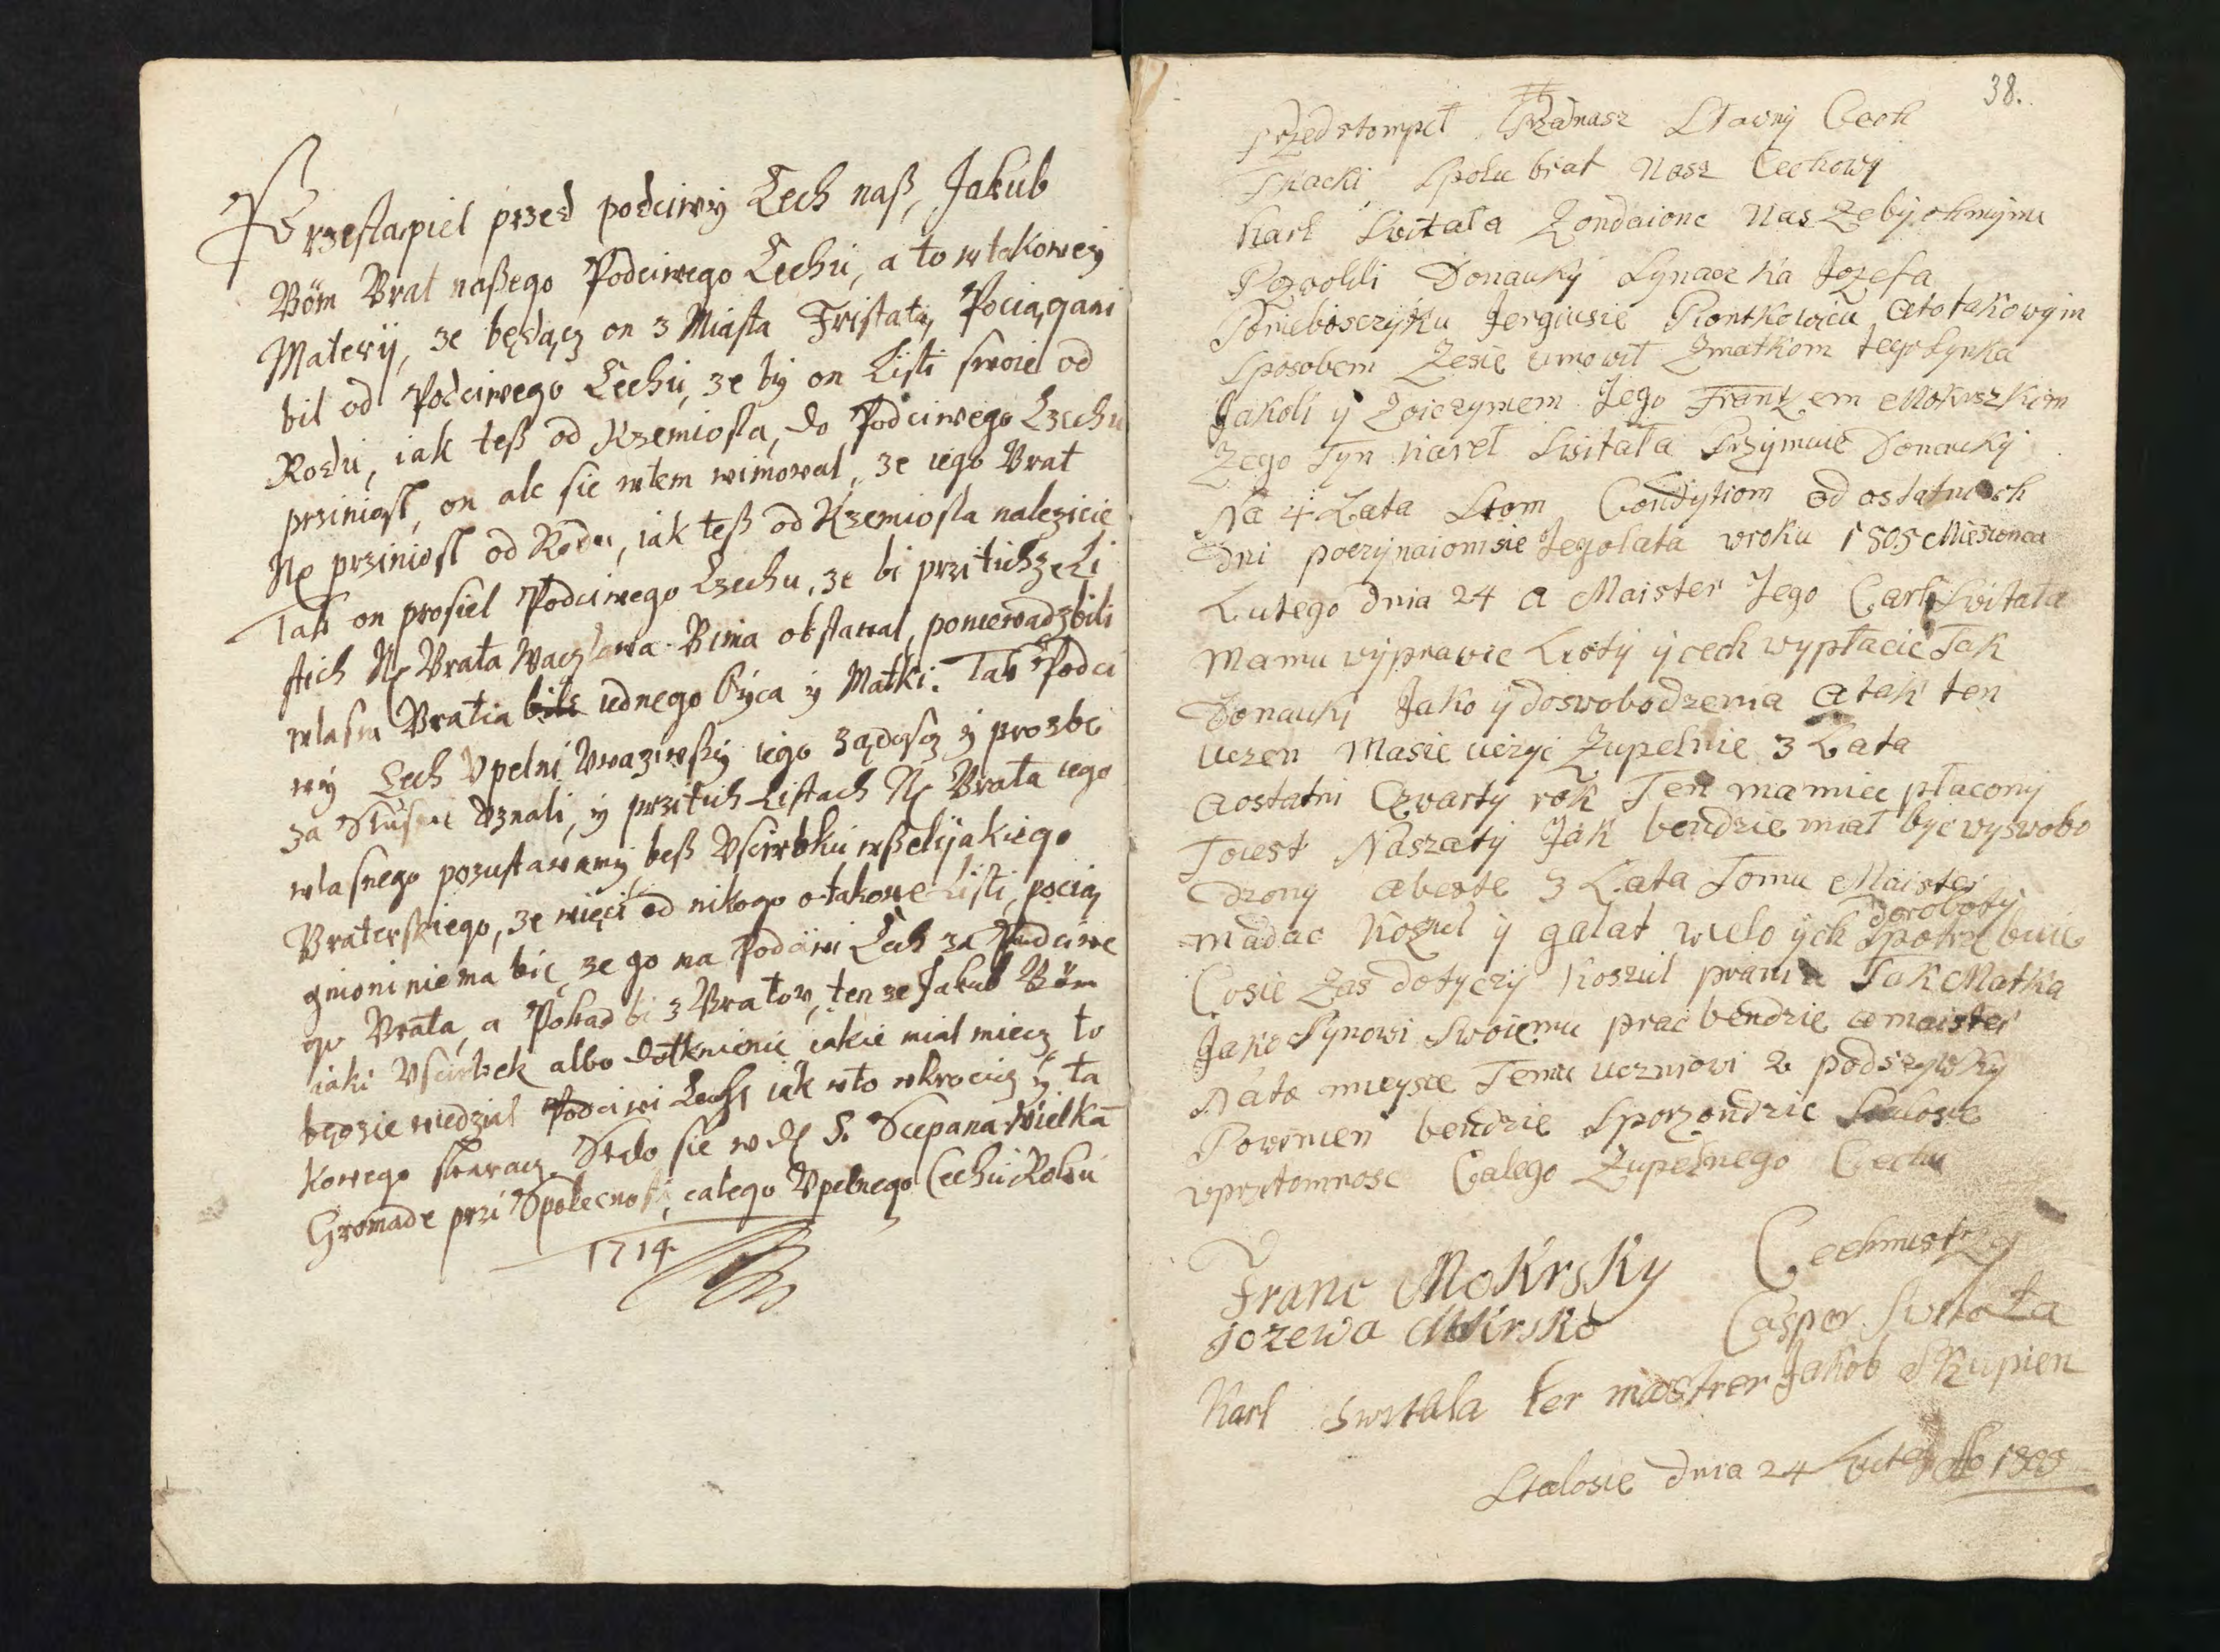 Przestąpiel przed podciwy Cech naß, Jakub
Böm Brat naßego Podciwego Cechu, a to w takowey
Materÿ, ze będącz on z Miasta Fristatu, Pociągani
bil od Podciwego Cechu, ze by on Listi swoie od
Rodu, iak teß od Rzemiosla, do Podciwego Czechu
prziniosl, on ale sie wtem wimowal, ze iego Brat
prziniosl od Rodu, iak teß od Rzemiosla nalezicie
Tak on prosiel Podciwego Czechu, ze bi przi tich ze Li
stich Brata Waczlawa Bima obstawal, poniewadz bili
wlasni Bratia bili iednego Oyca y Matki. Tak Podci
wy Cech Vpelni Vwaziwßy iego ządoscz y prozbe
za Slusne Vznali, y przi tich Listach Brata iego
wlasnego pozustawamy, beß Vscirbku wßelijakiego
Braterskiego, ze więci od nikogo o takowe Listi, pocią
gnioni niema bic, ze go ma Podciwi Cech za Podciwe
go Brata, a Pokad bi z Bratow, ten ze Jakub Böm
iaki Vscirbek albo dotknienie iakie mial miecz, to
będzie wiedzial Podciwi Cech iak w to wkrocicz y ta
kowego skaracz. Stalo sie w S. Scepana Wielka
Gromade przi Spolecnosci, calego Vpelnego Cechu Roku
1714
38.
Przedstompił Przadnasz Sławny Cech
Tkacki Społu brat Nasz Cechowy
Karl Switała Zondaionc Nas Zebychmymu
Pozwolili Donauky Synaczka Jozefa
Poniebosczyku Jergiusie Piontkowicu Atotakowym
Sposobem Zesie umowił Zmatkom tego Synka
Jakoli y Zoiczymem Jego Frantzem Mokrszkim
Zego Tyn Karel Switała Przymuie Donauky
Na 4 Lata Stom Condytiom od ostatnich
dni poczynaiomsie Jegolata wroku 1805 Miesionca
Lutego dnia 24 a Maister Jego Carl Switala
Mamu wyprawic Listy y cech wypłacic Tak
Donauky Jako y doswobodzenia Atak ten
Uczen Masie uczyc Zupelnie 3 Lata
Aostatni Czwarty rok Ten mamiec płacony
Toiest Naszaty Jak bendzie miał byc wyswobo
dzony abeste 3 Lata Tomu Maister
madac Koszul y galat wielo ych doroboty Spotrzebuie
Cosie Zas dotyczy Koszul prania Tak Matka
Jako Synowi Swoiemu prac bendzie a maister
Nato mieysce Temu uczniowi 2 podszywky
Powinien bendzie Sporzondzic Stalosie
wprzitomnosc Calego Zupelnego Cechu
Franc Mokrsky Cechmistrzy
Jozewa Mokrsko Casper Switała
Karl Switala ler maistrer Jakob Skupien
Stalosie dnia 24 Lutego 1805